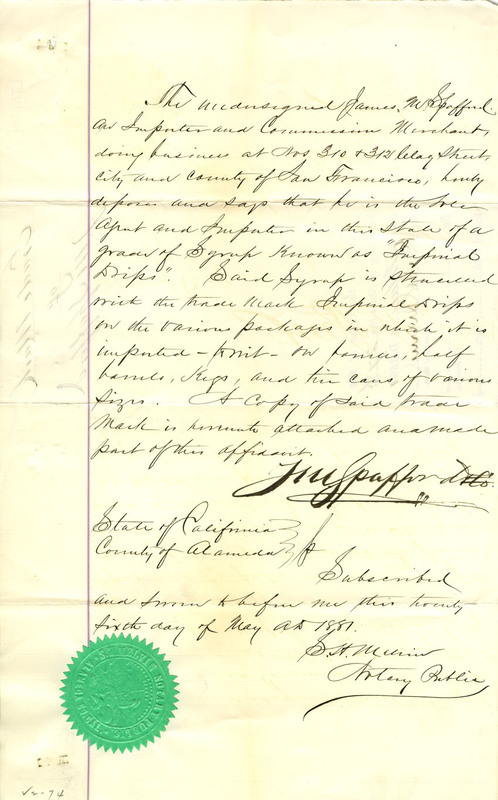 The undersigned James M Spafford
an Importer and Commission Merchant,
doing business at Nos 310 & 312 Clay Street
city and county of San Francisco, hereby
deposes and says that he is the Sole
Agent and Importer in this State of a
grade of Syrup Known as "Imperial
Drips". Said Syrup is stenciled
with the trade Mark Imperial Drips
on the various packages in which it is
imported - towit - on barrels, half
barrels, Kegs, and tin cans of various
sizes. A Copy of said trade
Mark is hereunto attached and made
part of this affidavit.
J M Spafford
State of California
County of Alameda
Subscribed
and sworn to before me this twenty
sixth day of May AD 1881.
Notary Public